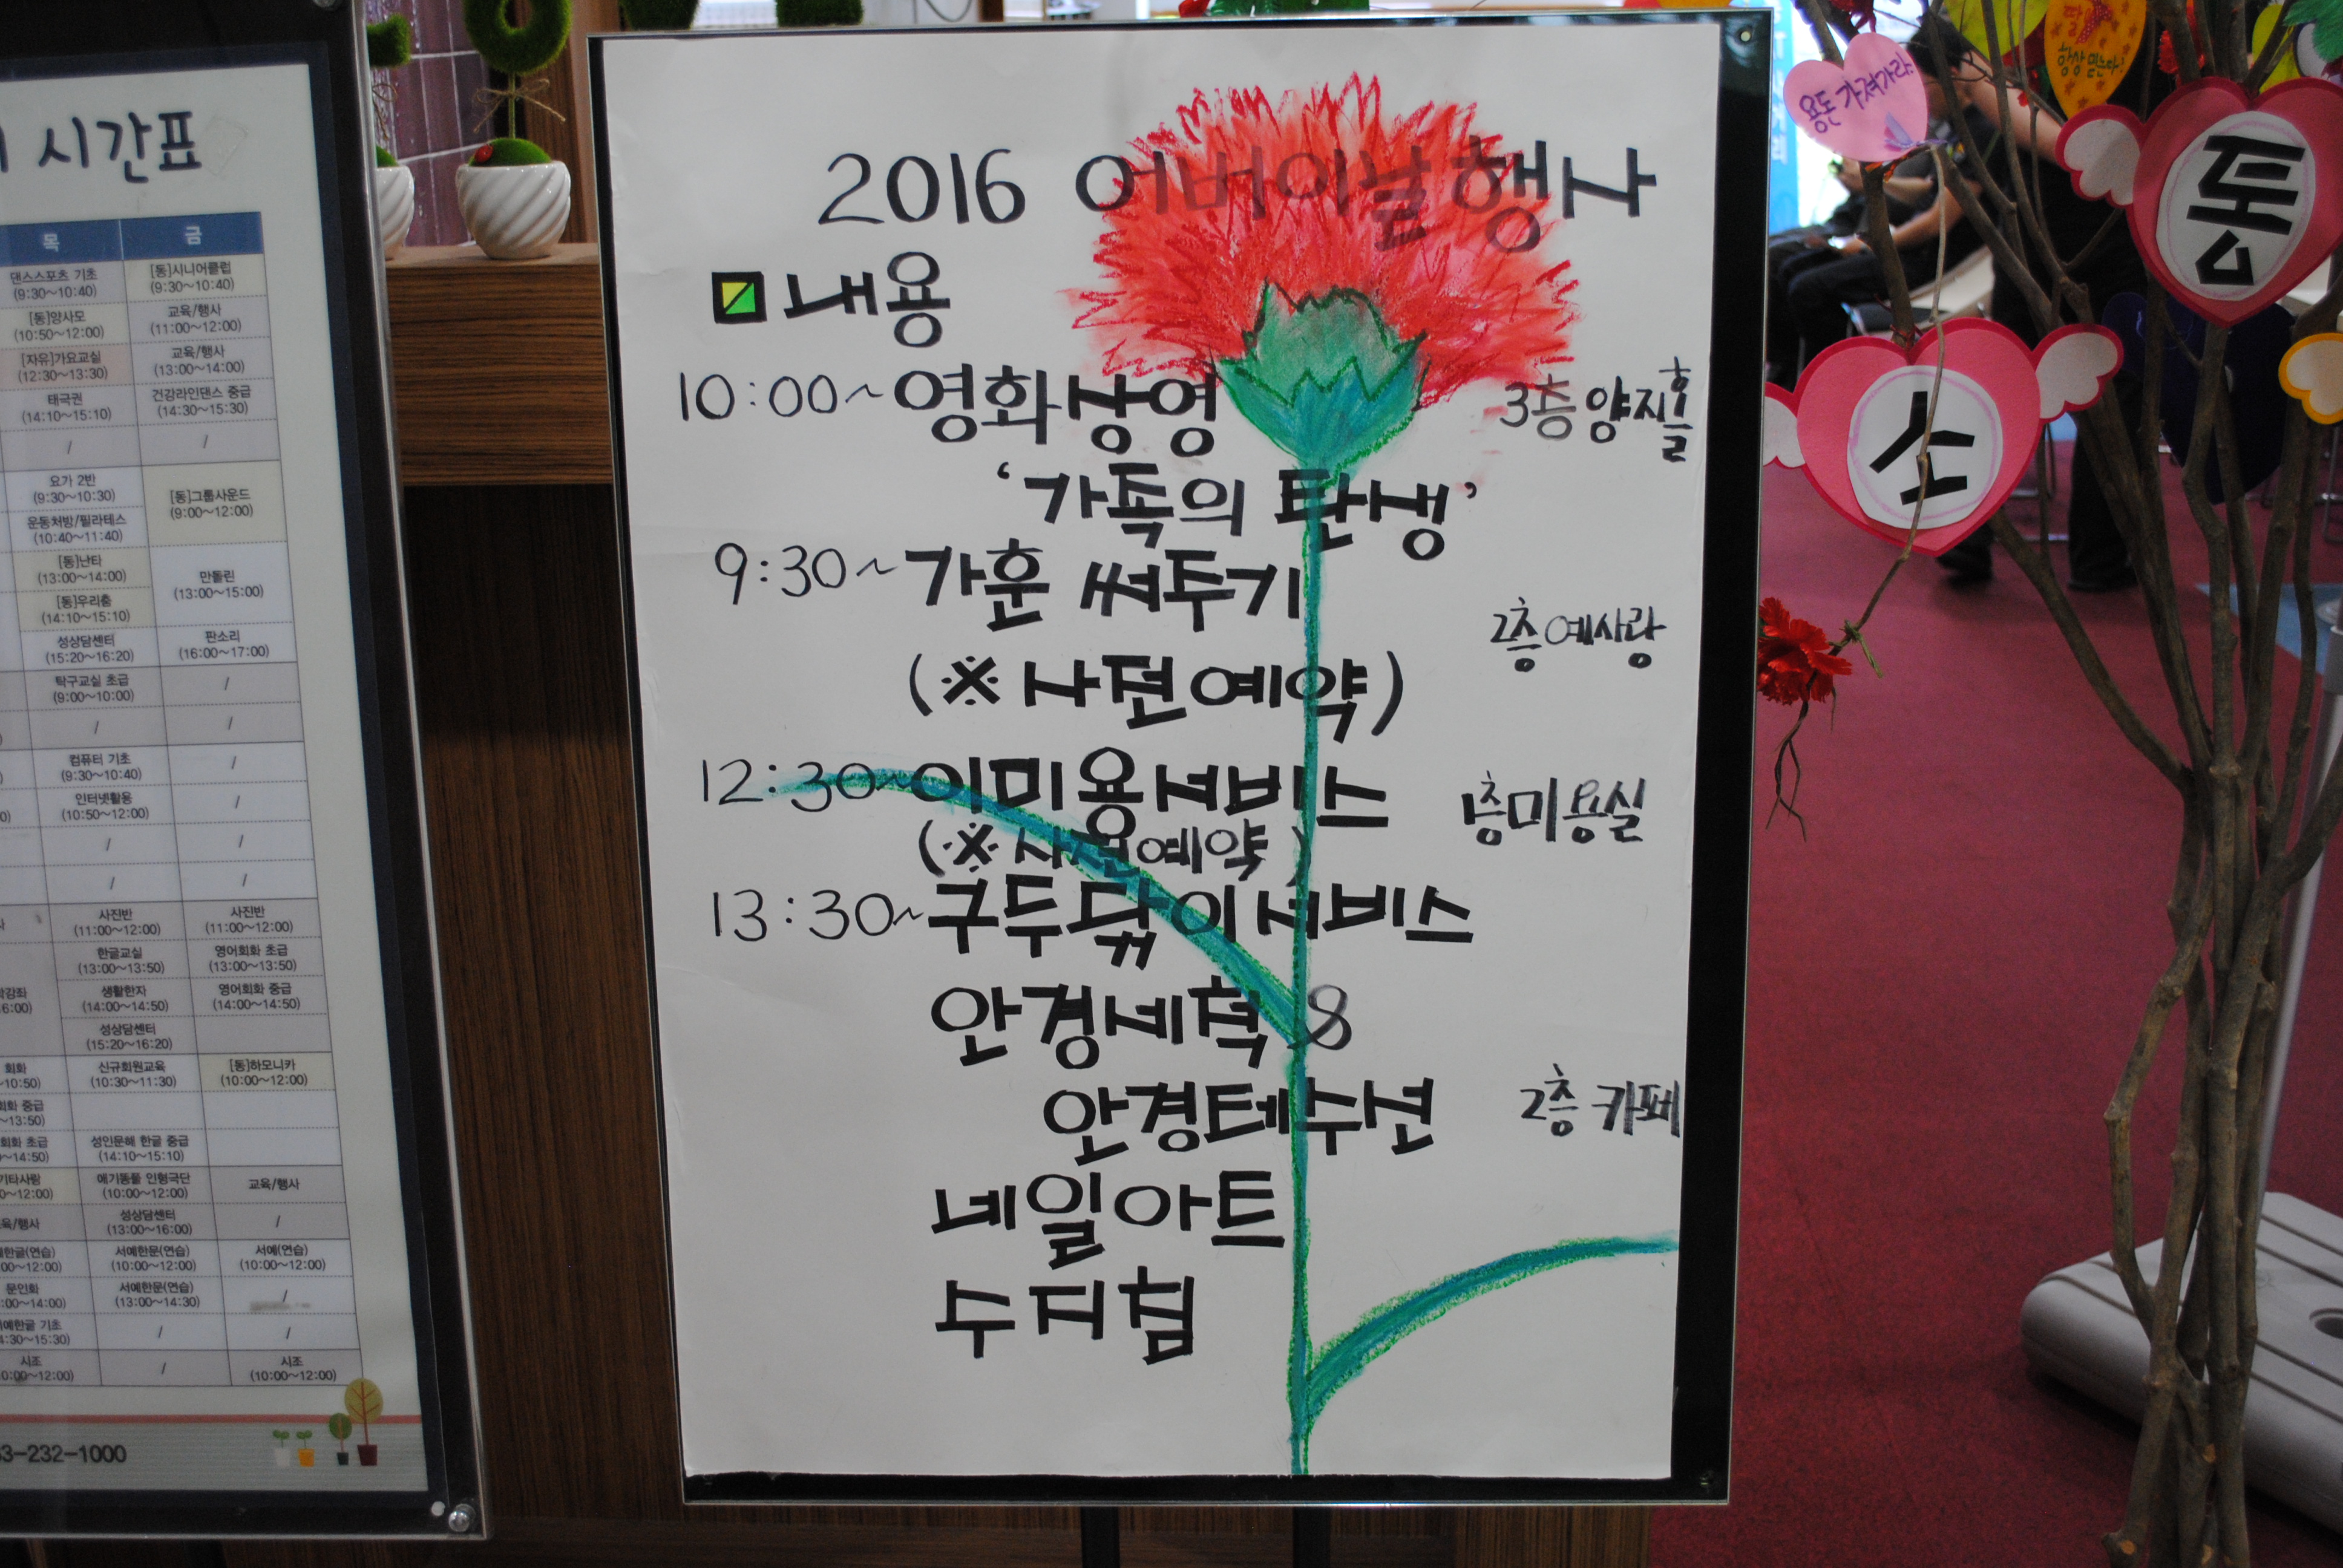 시간표
목 금
댄스스포츠 기초 [동]시니어클럽
(9:30~10:40) (9:30~10:40)
[동]양사모 교육/행사
(10:50~12:00) (11:00~12:00)
[자유]가요교실 교육/행사
(12:30~13:30) (13:00~14:00)
태극권 건강라인댄스 중급
(14:10~15:10) (14:30~15:30)
/ /
요가 2반 [동]그룹사운드
(9:30~10:30) (9:00~12:00)
운동처방/필라테스
(10:40~11:40)
[동]난타 만돌린
(13:00~14:00) (13:00~15:00)
[동]우리춤
(14:10~15:10)
성상담센터 판소리
(15:20~16:20) (16:00~17:00)
탁구교실 초급 /
(9:00~10:00)
/ /
컴퓨터 기초 /
(9:30~10:40)
인터넷활용 /
(10:50~12:00)
/ /
/ /
사진반 사진반
(11:00~12:00) (11:00~12:00)
한글교실 영어회화 초급
(13:00~13:50) (13:00~13:50)
생활한자 영어회화 중급
(14:00~14:50) (14:00~14:50)
성상담센터
(15:20~16:20)
회화 신규회원교육 [동]하모니카
~10:50) (10:30~11:30) (10:00~12:00)
회화 중급
~13:50)
회화 초급 성인문해 한글 중급
~14:50) (14:10~15:10)
기타사랑 애기똥풀 인형극단 교육/행사
~12:00) (10:00~12:00)
육/행사 성상담센터 /
(13:00~16:00)
한글(연습) 서예한문(연습) 서예(연습)
:00~12:00) (10:00~12:00) (10:00~12:00)
문인화 서예한문(연습) /
:00~14:00) (13:00~14:30)
예한글 기초 / /
:30~15:30)
시조 / 시조
0:00~12:00) (10:00~12:00)
3-232-1000
2016 어버이날행사
내용
10:00~ 영화상영 3층 양지홀
'가족의 탄생'
9:30~ 가훈 써두기
2층 예사랑
(※ 사전예약)
12:30~ 이미용서비스 1층미용실
(※ 사전예약)
13:30~ 구두닦이서비스
안경세척 &
안경테수선 2층 카페
네일아트
수지침
용돈 가져가라
항상 믿는다!
통
소